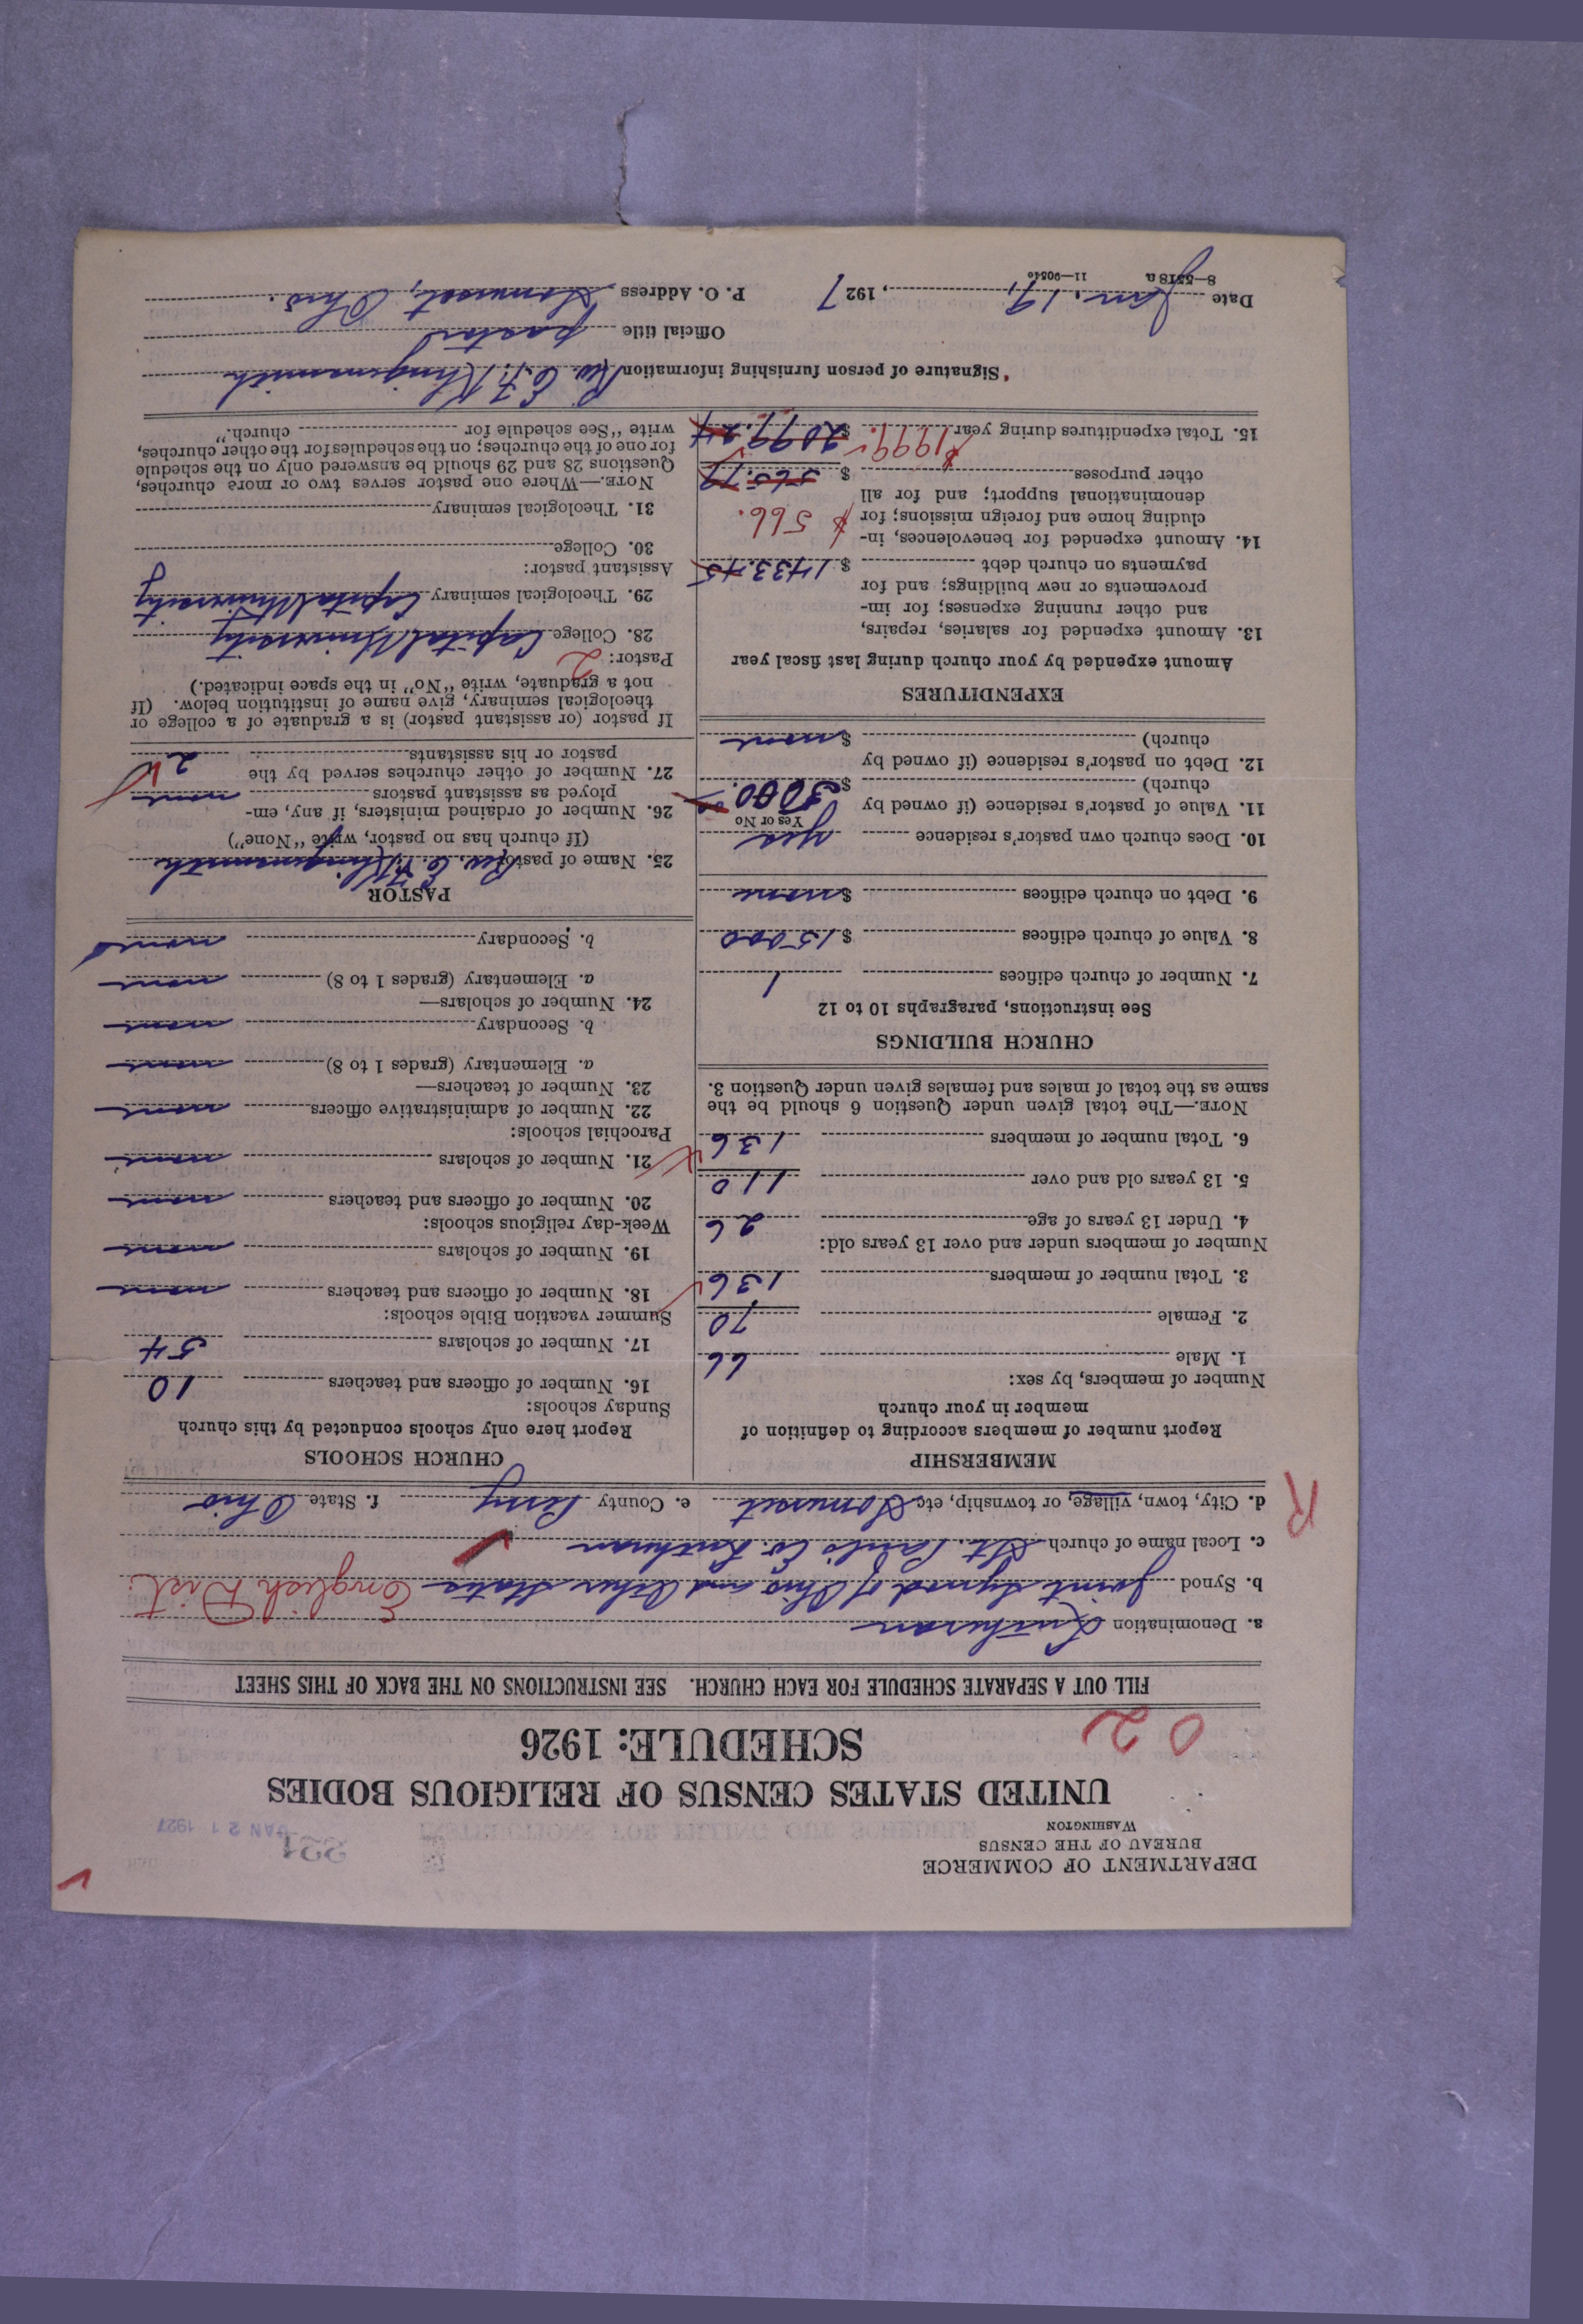 DEPARTMENT OF COMMERCE
BUREAU OF THE CENSUS
WASHINGTON
JAN 21 1927
UNITED STATES CENSUS OF RELIGIOUS BODIES
SCHEDULE: 1926
02
FILL OUT A SEPARATE SCHEDULE FOR EACH CHURCH. SEE INSTRUCTIONS ON THE BACK OF THIS SHEET
a. Denomination Lutheran
b. Synod Joint Synod of Ohio and Other States English Dist.
c. Local name of church St. Paul's Ev. Lutheran
d. City, town, village, or township, etc. Somerset e. County Perry f. State Ohio
R
MEMBERSHIP
Report number of members according to definition of
member in your church
Number of members, by sex:
1. Male 66
2. Female 70
3. Total number of members 136
Number of members under and over 13 years old:
4. Under 13 years of age 26
5. 13 years old and over 110
6. Total number of members 136
NOTE.—The total given under Question 6 should be the
same as the total of males and females given under Question 3.
CHURCH BUILDINGS
See instructions, paragraphs 10 to 12
7. Number of church edifices 1
8. Value of church edifices $15000
9. Debt on church edifices $ none
10. Does church own pastor's residence yes
Yes or No
11. Value of pastor's residence (if owned by
church) $ 3000.
12. Debt on pastor's residence (if owned by
church) $ none
EXPENDITURES
Amount expended by your church during last fiscal year
13. Amount expended for salaries, repairs,
and other running expenses; for im-
provements or new buildings; and for
payments on church debt $ 1433.45
14. Amount expended for benevolences, in-
cluding home and foreign missions; for $ 566.
denominational support; and for all
other purposes $ 565.79
15. Total expenditures during year $1999. $ 2099.24
CHURCH SCHOOLS
Report here only schools conducted by this church
Sunday schools:
16. Number of officers and teachers 10
17. Number of scholars 54
Summer vacation Bible schools:
18. Number of officers and teachers none
19. Number of scholars none
Week-day religious schools:
20. Number of officers and teachers none
21. Number of scholars none
Parochial schools:
22. Number of administrative officers none
23. Number of teachers—
a. Elementary (grades 1 to 8) none
b. Secondary none
24. Number of scholars—
a. Elementary (grades 1 to 8) none
b. Secondary none
PASTOR
25. Name of pastor Rev. C. F.
(If church has no pastor, write "None")
26. Number of ordained ministers, if any, em-
ployed as assistant pastors none
27. Number of other churches served by the
pastor or his assistants 2
If pastor (or assistant pastor) is a graduate of a college or
theological seminary, give name of institution below. (If
not a graduate, write "No" in the space indicated.)
Pastor: 2
28. College Capital University
29. Theological seminary Capital University
Assistant pastor:
30. College
31. Theological seminary
NOTE.—Where one pastor serves two or more churches,
Questions 28 and 29 should be answered only on the schedule
for one of the churches; on the schedules for the other churches,
write "See schedule for church."
Signature of person furnishing information Rev. C. F.
Official title pastor
Date Jan. 19, 1927 P. O. Address Somerset, Ohio.
8—5518a 11—90540